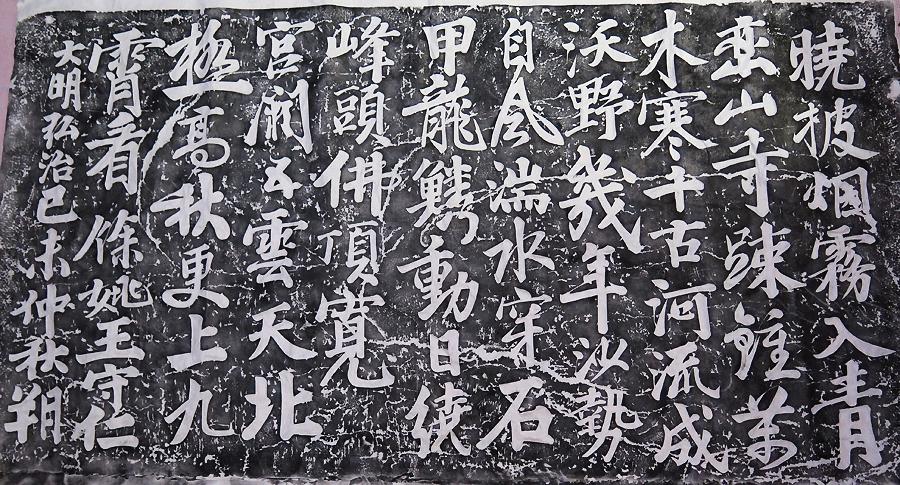 曉披烟霧入青
巒山寺踈鐘萬
木寒千古河流成
沃野幾年沙勢
自風湍水穿石
甲龍鱗動日繞
峰頭佛頂寬
宫闕五雲天北
極高秋更上九
霄看 餘姚王守仁
大明弘治己未仲秋朔